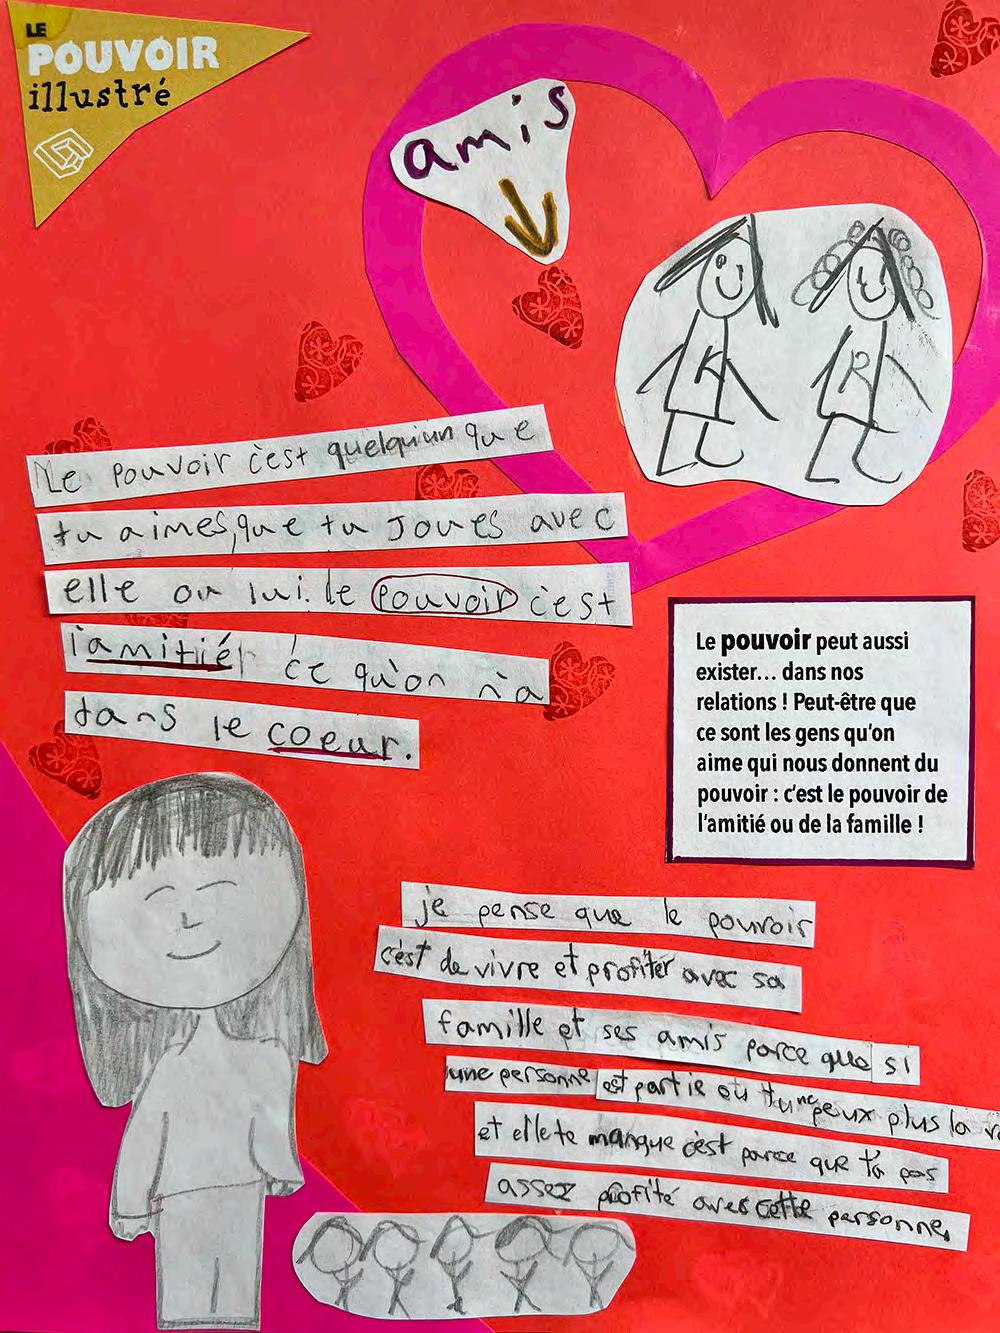 LE
POUVOIR
illustré
amis
K
R
Le pouvoir c'est quelqu'un que
tu aimes, que tu joues avec
elle ou lui. le pouvoir c'est
l'amitiér ce qu'on n'a
dans le coeur.
Le pouvoir peut aussi
exister... dans nos
relations ! Peut-être que
ce sont les gens qu'on
aime qui nous donnent du
pouvoir : c'est le pouvoir de
l'amitié ou de la famille !
je pense que le pouvoir
c'est de vivre et profiter avec sa
famille et ses amis parce que si
une personne est partie ou tu ne peux plus la
et elle te manque c'est parce que t'a pas
assez profité avec cette personne,